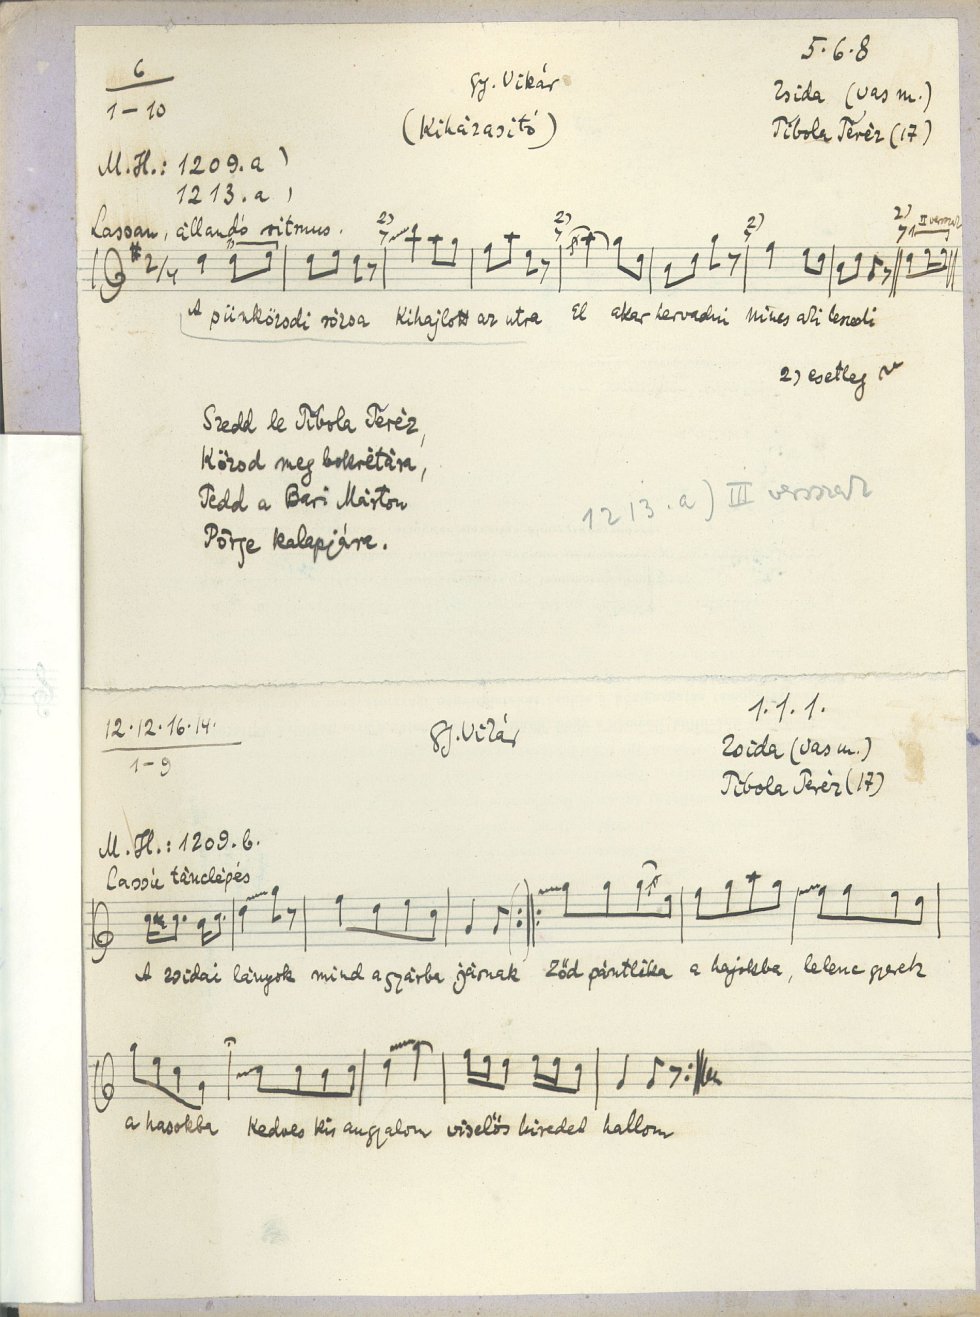 6
1 – 10
gy. Vikár
(Kiházasitó)
5·6·8
Zsida (Vas m.)
Tibola Teréz (17)
M.H.: 1209.a)
1213.a)
Lassan, állandó ritmus.
2) 2) 2) 2) II versszak
2/4
A pünközsdi rózsa Kihajlott az utra El akar hervadni Nincs aki leszedi
2) esetleg
Szedd le Tibola Teréz,
Közsd meg bokrétára,
Tedd a Bari Márton
Pörge kalapjára.
1213.a) III versszak
12·12·16·14·
1 – 9
gy. Vikár
1·1·1·
Zsida (Vas m.)
Tibola Teréz (17)
M.H.: 1209.b.
Lassú tánclépés
A zsidai lányok mind a gyárba járnak Ződ pántlika a hajokba, lelenc gyerek
a hasokba Kedves kis angyalom viselős hiredet hallom